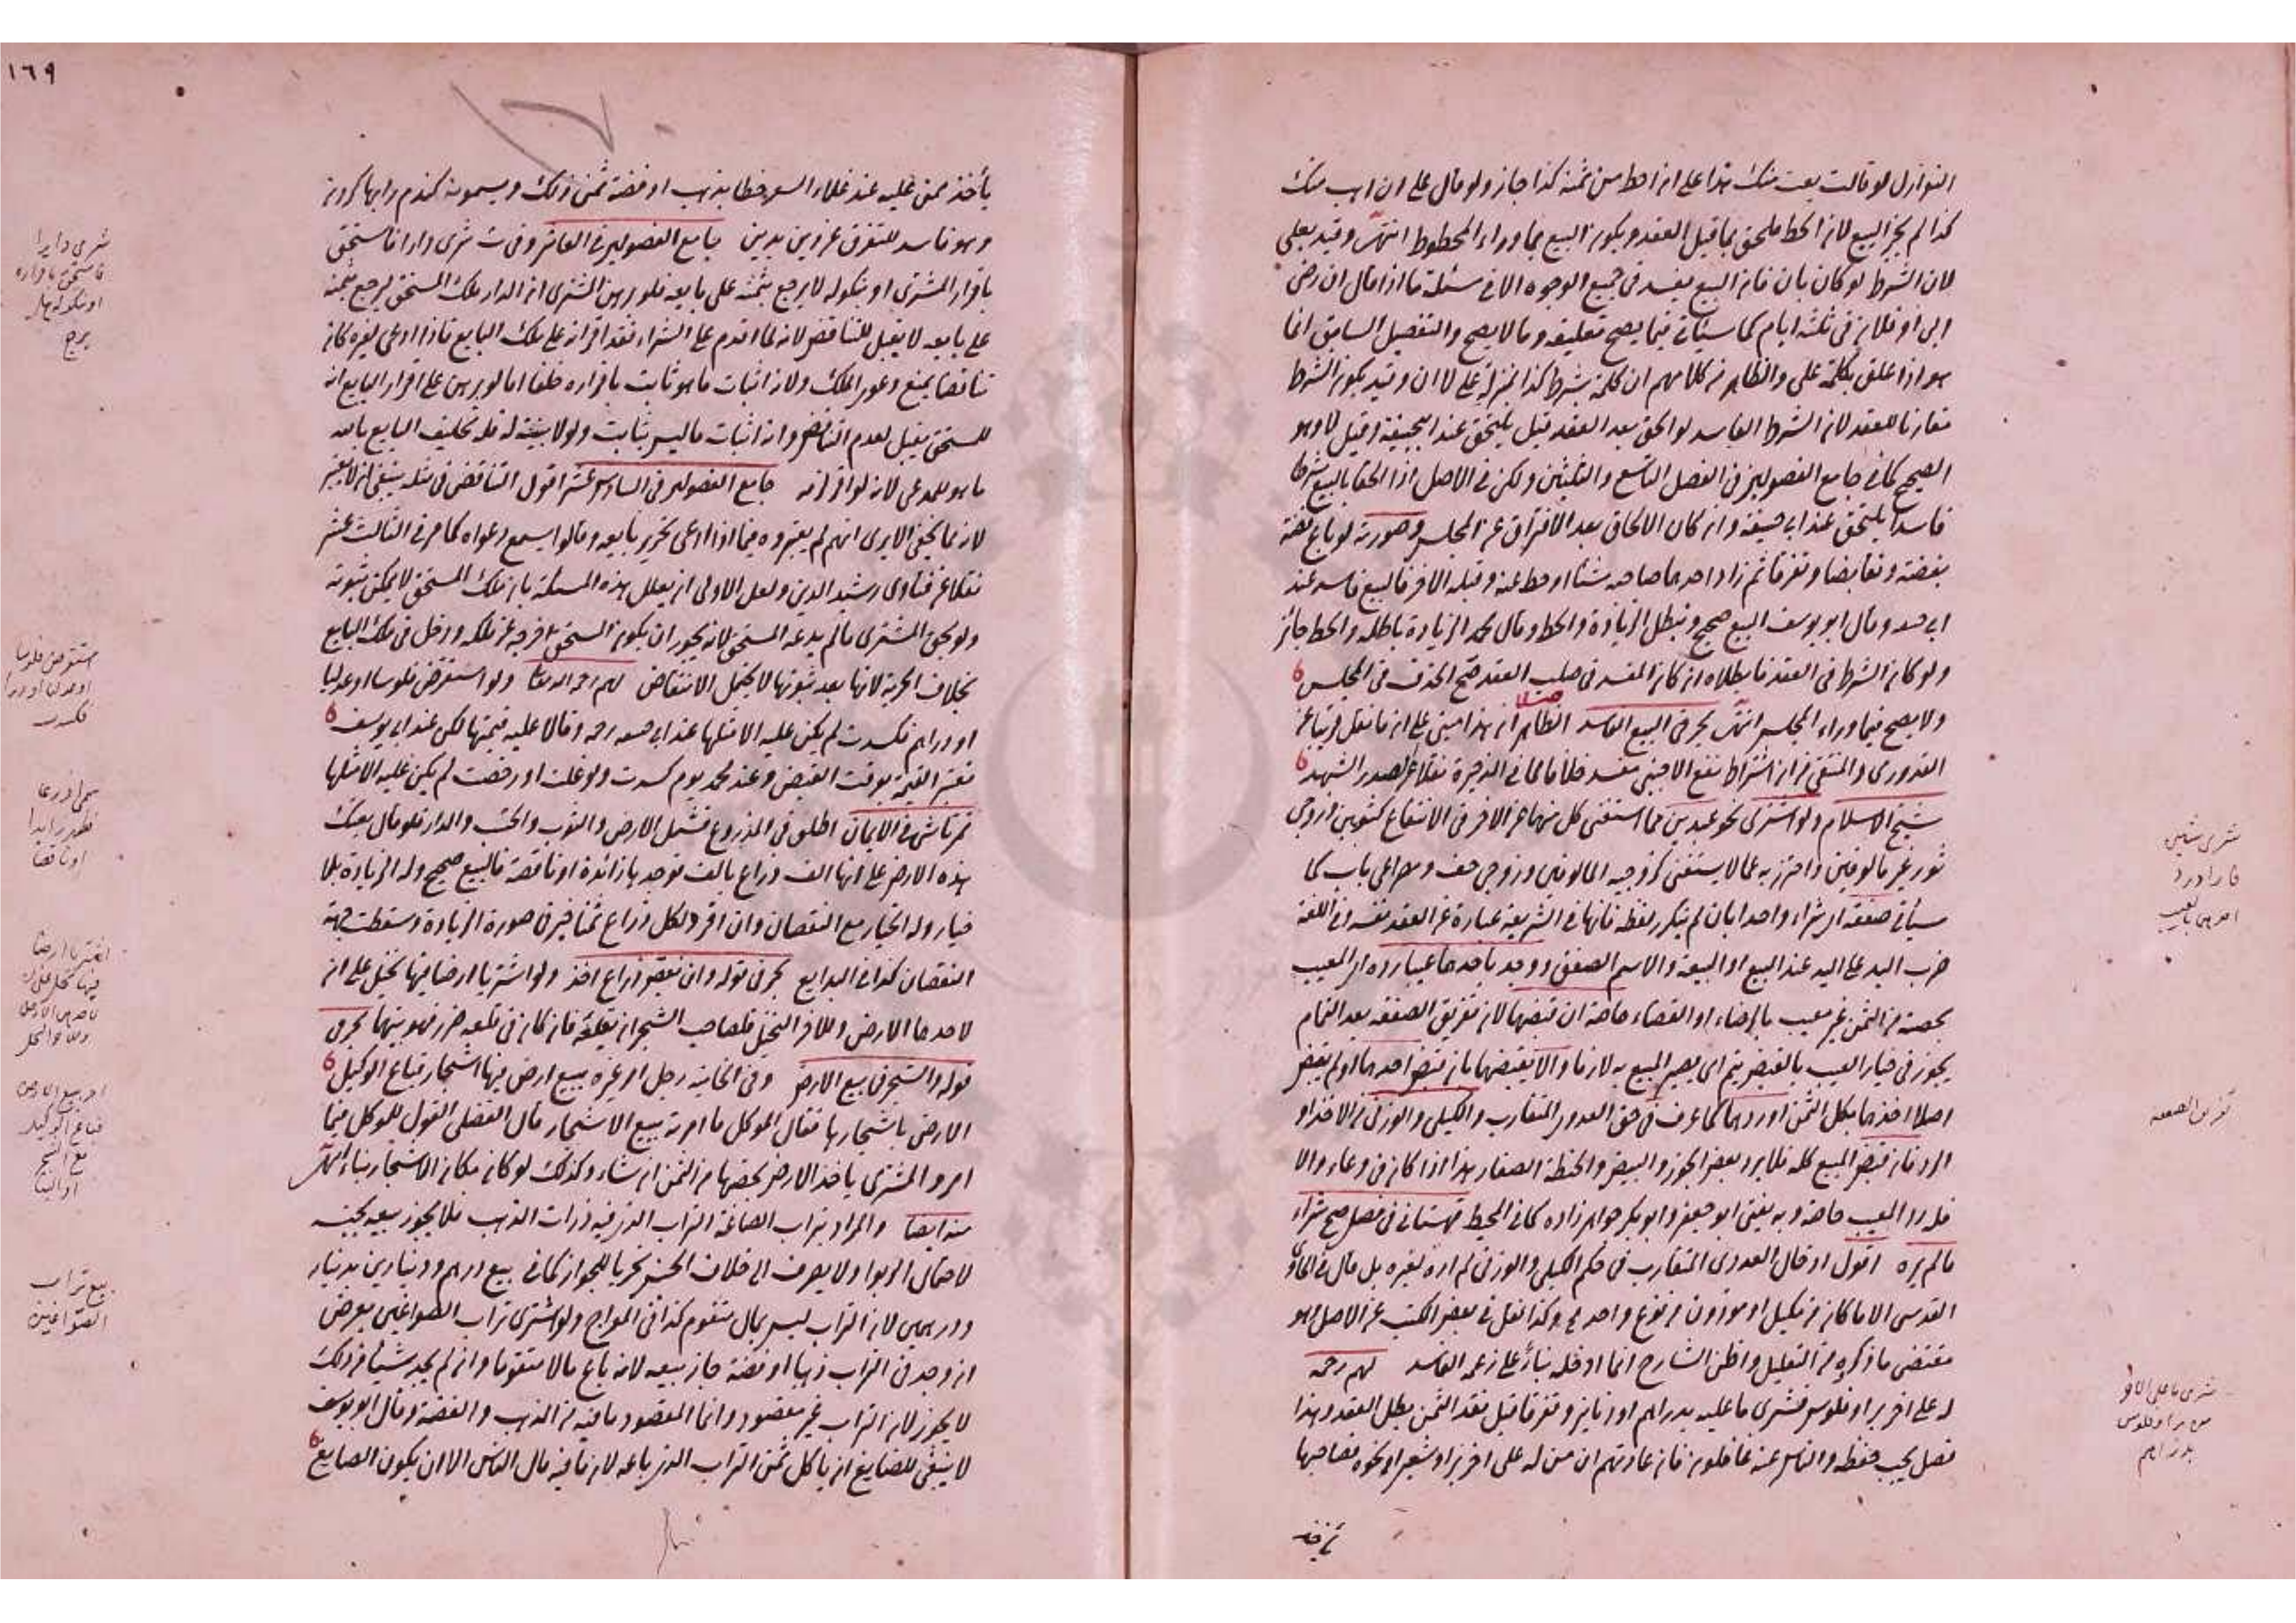 النوازل لو قالت بعت منك هذا على ان احط من ثمنه كذا جاز ولو قال على ان اهب منك
كذا لم يجز البيع لان الحط ملحق بما قبل العقد ويكون البيع بما وراء المحطوط انتهى وقيد بعلى
لان الشرط لو كان بان فان البيع يفسد في جميع الوجوه الا في مسئلة ما اذا قال ان رضى
ابى او فلان في ثلثة ايام كما سيأتي فيما يصح تعليقه وما لا يصح والتفصيل السابق انما
هو اذا علق بكلمة على والظاهر من كلامهم ان كلمة بشرط كذا بمنزلة على لا ان وقيد بكون الشرط
مقارنا للعقد لان الشرط الفاسد لو الحق بعد العقد قيل يلتحق عند ابيحنيفة وقيل لا وهو
الصحيح كما في جامع الفصولين في الفصل التاسع والثلثين ولكن في الاصل اذا الحقا بالبيع شرطا
فاسدا يلتحق عند ابي حنيفة وان كان الالحاق بعد الافتراق عن المجلس وصورته لو باع فضة
بفضة وتقابضا وتفرقا ثم زاد احدهما صاحبه شيئا او حط عنه وقبله الاخر فالبيع فاسد عند
ابي حنيفة وقال ابو يوسف البيع صحيح وتبطل الزيادة والحط وقال محمد الزيادة باطلة والحط جائز
ولو كان الشرط في العقد فابطلاه ان كان المفسد في صلب العقد صح الحذف في المجلس
ولا يصح فيما وراء المجلس انتهى بحر في البيع الفاسد الظاهر ان هذا مبنى على ان ما نقل قريبا عن
القدوري والمنتقى من ان اشتراط نفع الاجنبي مفسد خلافا لما في الذخيرة نقلا عن الصدر الشهيد
شيخ الاسلام ولو اشترى نحو عبدين مما استغنى كل منهما عن الاخر في الانتفاع كثوبين وزوجى
ثور غير مالوفين واحترز به عما لا يستغنى كزوجيه المالوفين وزوجى خف ومصراعى باب كما
سيأتي صفقة اى شراء واحدا بان لم يتكرر لفظه فانها في الشريعة عبارة عن العقد نفسه وفي اللغة
ضرب اليد على اليد عند البيع او البيعة والاسم الصفق ووجد باحدهما عيبا رده اى المعيب
بحصته من الثمن غير معيب بالرضاء او القضاء خاصة ان قبضهما لان تفريق الصفقة بعد التمام
يجوز في خيار العيب بالقبض يتم اى يصير المبيع به لازما والا يقبضهما بان قبض احدهما او لم يقبض
اصلا اخذهما بكل الثمن او ردهما كما عرف في حق العددى المتقارب والكيلى والوزنى من الاخذ او
الرد فان قبض المبيع كله فلا يرد بعض الجوز والبيض والحنطة الصغار هذا اذا كان في وعاء والا
فله رد المعيب خاصة وبه يفتى ابو جعفر وابو بكر خواهر زاده كما في المحيط قهستانى في فصل صح شراء
ما لم يره اقول ادخال العددى المتقارب في حكم الكيلى والوزنى لم اره لغيره بل قال في الحاوى
القدسى الا ما كان من مكيل او موزون من نوع واحد وكذا نقل في بعض الكتب عن الاصل وهو
مقتضى ما ذكره من التعليل واظن الشارح انما ادخله بناء على زعمه الفاسد لهم رحمه
له على اخر بر او فلوس فشرى ما عليه بدراهم او دنانير وتفرقا قبل نقد الثمن بطل العقد وهذا
فصل يجب حفظه والناس عنه غافلون فان عادتهم ان من له على اخر بر او شعير او نحوه فصاحبها
شرى شيئين
فازا ورد
احدهما بالعيب
تفريق الصفقة
شرى ما على الاخر
من بر او فلوس
بدراهم
١٦٩
يأخذ ممن عليه عند غلاء السعر خطا بذهب او فضة ثمن ذلك ويسمونه كندم رابها كردن
وهو فاسد للتفرق عن دين بدين جامع الفصولين في العاشر وفى ث شرى دارا فاستحق
باقرار المشترى او نكوله لا يرجع بثمنه على بايعه فلو برهن المشترى ان الدار ملك المستحق ليرجع بثمنه
على بايعه لا يقبل للتناقض لانه لما اقدم على الشراء فقد اقر انه على ملك البايع فاذا ادعى لغيره كان
تناقضا يمنع دعوى الملك ولان اثبات ما هو ثابت باقراره خلفا اما لو برهن على اقرار البايع انه
للمستحق يقبل لعدم التناقض وانه اثبات ما ليس بثابت ولو لا بينة له فله تحليف البايع بالله
ما هو للمدعى لانه لو اقر لزمه جامع الفصولين في السادس عشر اقول التناقض في مثله ينبغى ان لا يعتبر
لانه مما يخفى الا يرى انهم لم يعتبروه فيما اذا ادعى تحرير بايعه وقالوا يسمع دعواه كما مر في الثالث عشر
نقلا عن فتاوى رشيد الدين ولعل الاولى ان يعلل هذه المسئلة بان ملك المستحق لا يمكن ثبوته
ولو بحق المشترى ما لم يدعه المستحق لانه يجوز ان يكون المستحق اخرجه عن ملكه ودخل في ملك البايع
بخلاف الحرية لانها بعد ثبوتها لا يحتمل الانتقاض لهم رحمه الله تعالى ولو استقرض فلوسا او عدليا
او دراهم فكسدت لم يكن عليه الا مثلها عند ابي حنيفة رحمه وقالا عليه قيمتها لكن عند ابي يوسف
تعتبر القيمة بوقت القبض وعند محمد يوم كسدت ولو غلت او رخصت لم يكن عليه الا مثلها
تمرتاشى في الايمان اطلق في المذروع فشمل الارض والثوب والخشب والدار فلو قال بعتك
هذه الارض على انها الف ذراع بالف فوجدها زائدة او ناقصة فالبيع صحيح وله الزيادة بلا
خيار وله الخيار مع النقصان وان افرد لكل ذراع ثمنا خير في صورة الزيادة وسقطت حصة
النقصان كذا في البدايع بحر في قوله وان نقص ذراع اخذ ولو اشتريا ارضا فيها نخيل على ان
لاحدهما الارض وللاخر النخيل فلصاحب الشجر ان يقلعه فان كان في قلعه ضرر فهو بينهما بحر في
قوله والشجر في بيع الارض وفي الخانية رجل امر غيره ببيع ارض فيها اشجار فباع الوكيل
الارض باشجارها فقال الموكل ما امرته ببيع الاشجار قال الفضلى القول للموكل فيما
امر والمشترى ياخذ الارض بحصتها من الثمن ان شاء وكذلك لو كان مكان الاشجار بناء انتهى
منه ايضا والمراد بتراب الصاغة التراب الذى فيه ذرات الذهب فلا يجوز بيعه بجنسه
لاحتمال الربوا ولا يصرف الى خلاف الجنس تحريا للجواز كما في بيع درهم ودينارين بدينار
ودرهمين لان التراب ليس بمال متقوم كذا في المعراج ولو اشترى تراب الصواغين بعرض
ان وجد في التراب ذهبا او فضة جاز بيعه لانه باع مالا متقوما وان لم يجد شيئا من ذلك
لا يجوز لان التراب غير مقصود وانما المقصود ما فيه من الذهب والفضة وقال ابو يوسف
لا ينبغى للصايغ ان ياكل ثمن التراب الذى باعه لان ما فيه مال الناس الا ان يكون الصايغ
شرى دارا
فاستحق باقراره
او نكوله هل
يرجع
استقرض فلوسا
او عدليا او دراهم
فكسدت
بيع تراب
الصواغين